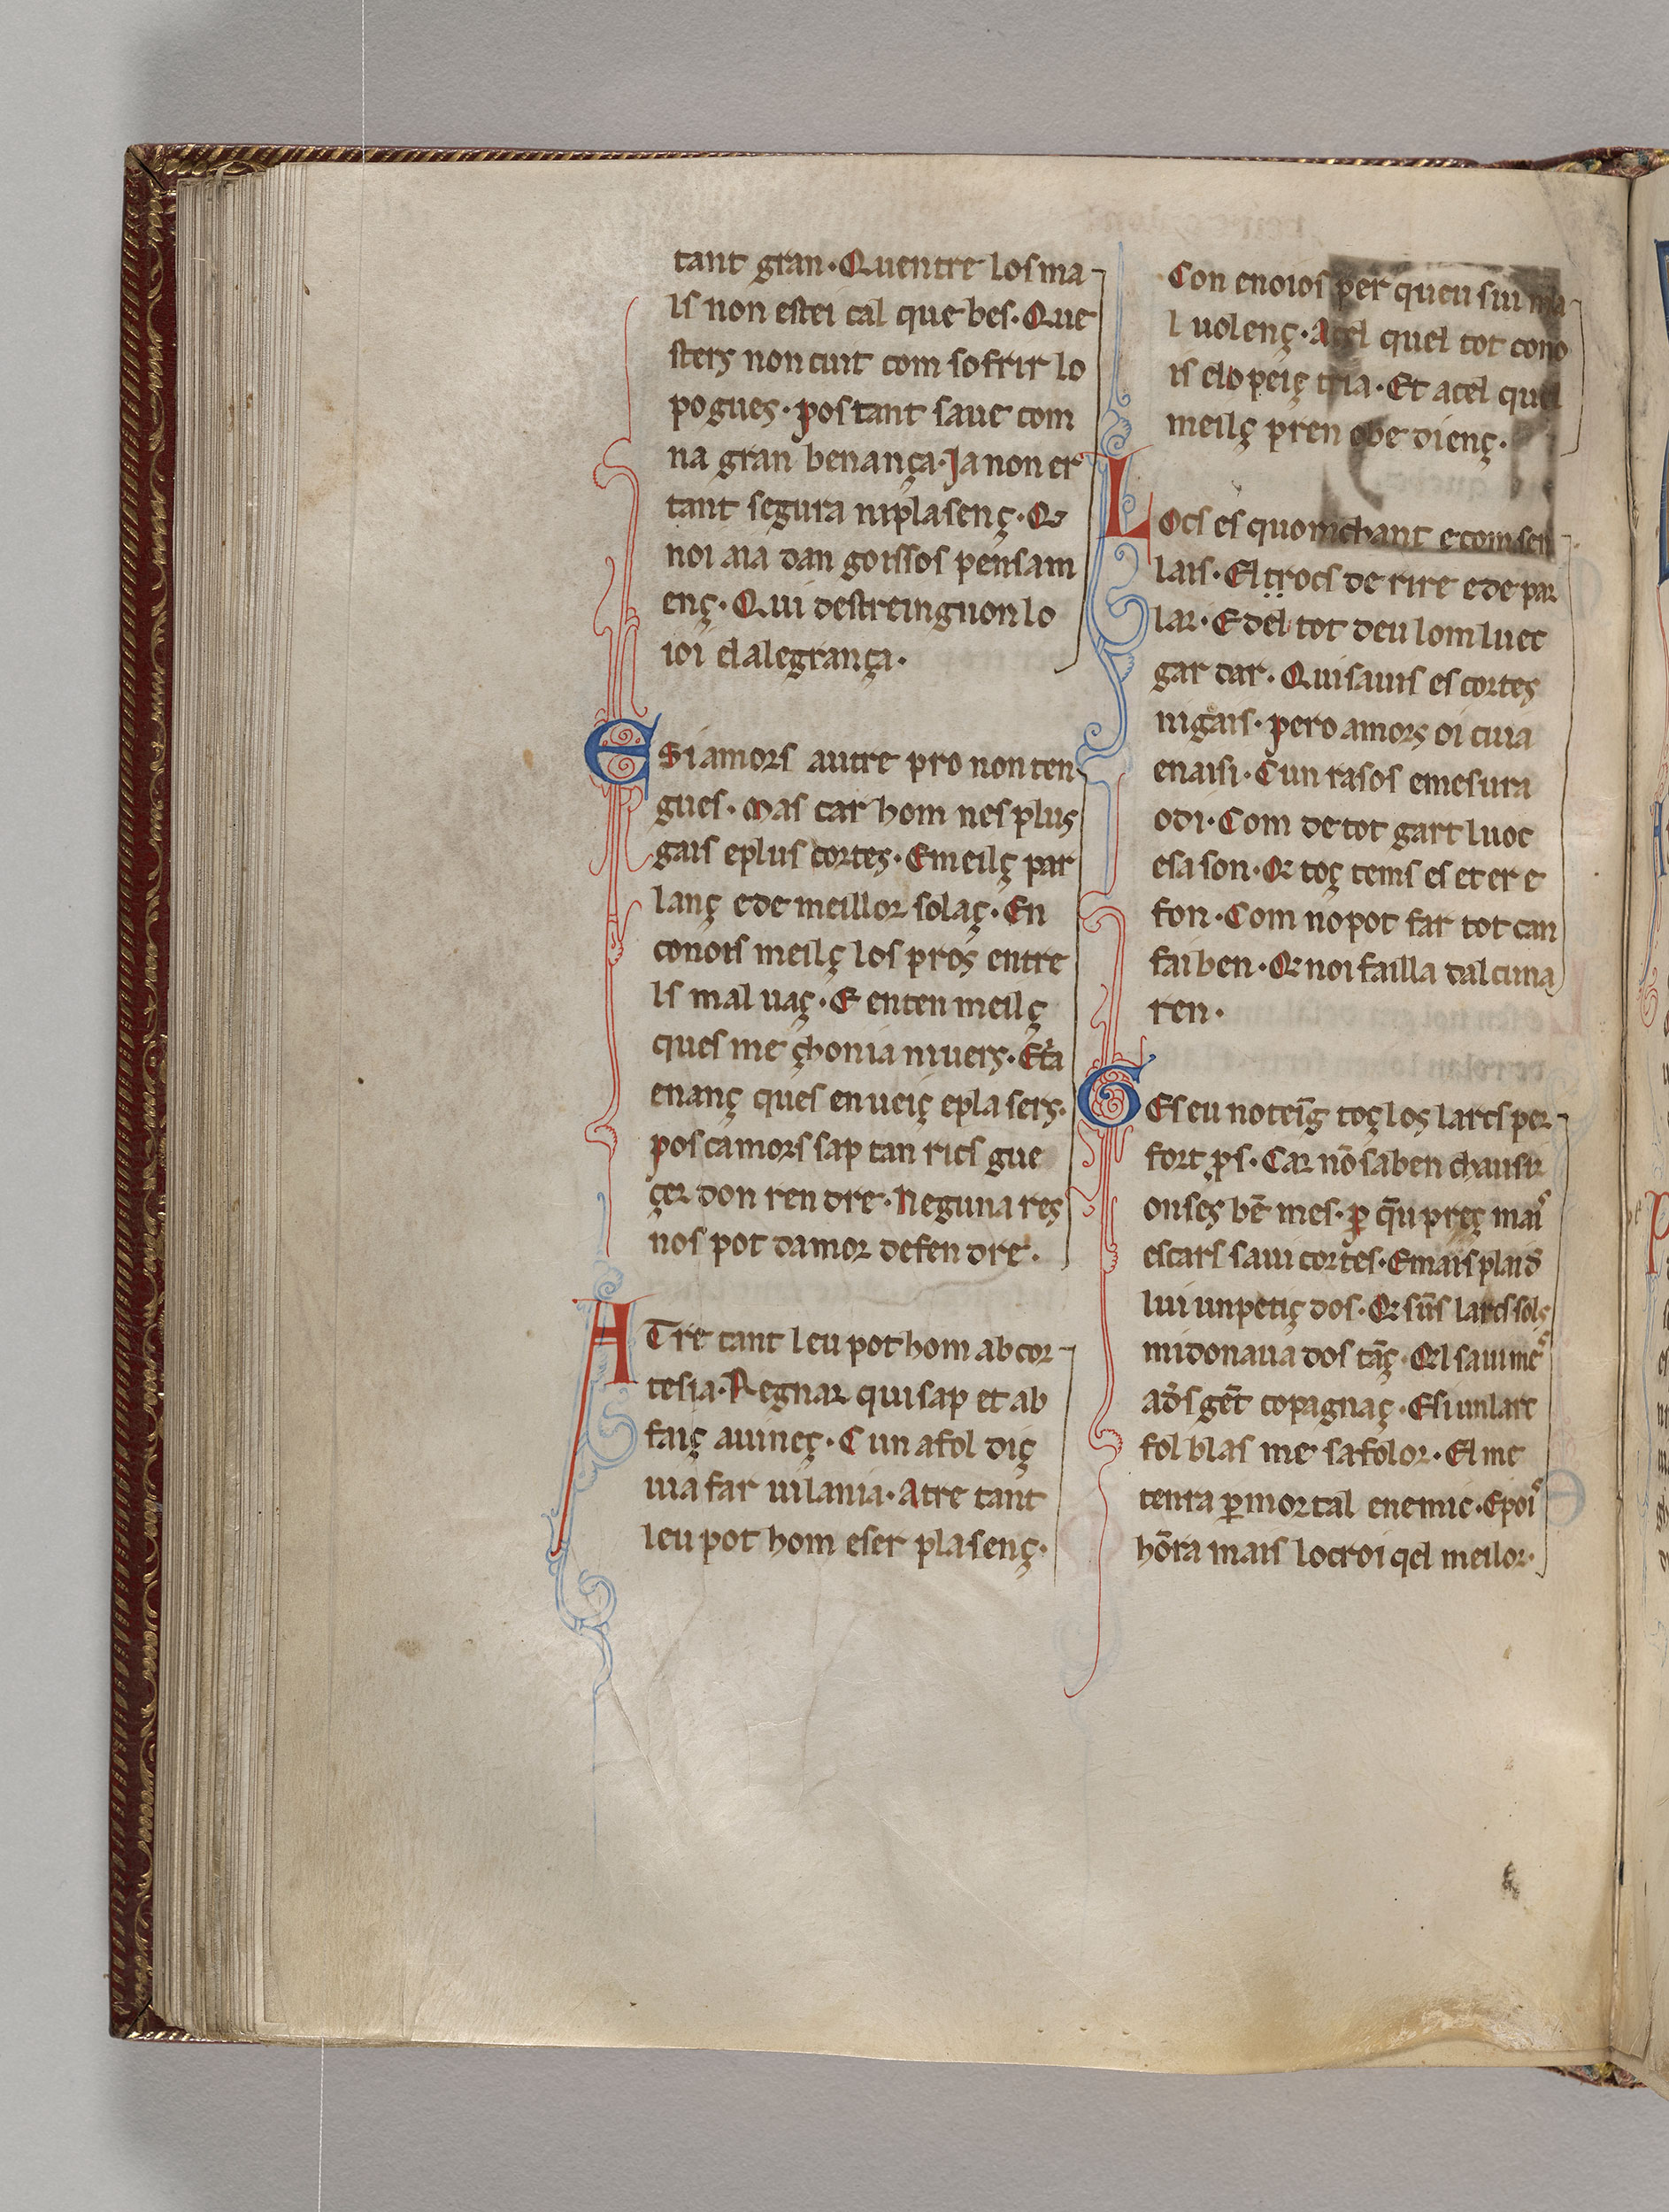 tant gran·Quentre los ma
ls non estei cal que bes·Que
sters non cuit com sofrir lo
pogues·pos tant saue com
na gran benança·Ja non er
tant segura ni plasenç·Q̃
noi aia dan goissos pensam
enç·Qui destreingnon lo
ioi el alegrança·
E Si amors autre pro non ten
gues·mas car hom nes plus
gais eplus cortes·Emeilç par
lanç ede meillor solaç·En
conois meilç los pros entre
ls mal uaç·E enten meilç
ques me çhonia niuers·Et̃a
enanç ques en ueiç epla sers·
pos camors sap tan rics gue
çer don ren dre·Neguna res
nos pot damor defen dre·
A Tre tant leu pot hom ab cor
tesia·Regnar qui sap et ab
faiç auineç·Cun afol diç
uia far uilania·Atre tant
leu pot hom eser plasenç·
Con enoios per queu sui ma
l uolenç·Acel quel tot cono
is elo peiç tria·Et acel quel
meilç pren obe dienç·
L Ocs es quom chant ecom sen
lais·El trocs de rire ede par
lar·Edel tot deu lom luec
gar dar·Qui sauis es cortes
nigais·pero amors oi cuia
enaisi·Cun rasos emesura
odi·Com de tot gart luoc
esa son·Q̃ toç tems es et er e
fon·Com no pot far tot can
fai ben·Q̃ noi failla dalcuna
ren·
G Es eu no teīg toç los larcs per
fort p̱s·Car nō saben chausir
onses bē mes·p̱ q̄u preç mais
escars saui cortes·Emais plaid
lui un petiç dos·Q̃ sūs larcs fols
mi donaua dos tāç·Q̃l saui me
aors gēt copagnaç·Esi un larc
fol blas me sa folor·El me
tenra p̱ mortal enemic·Epois
hōra mais lo croi qel meilor·